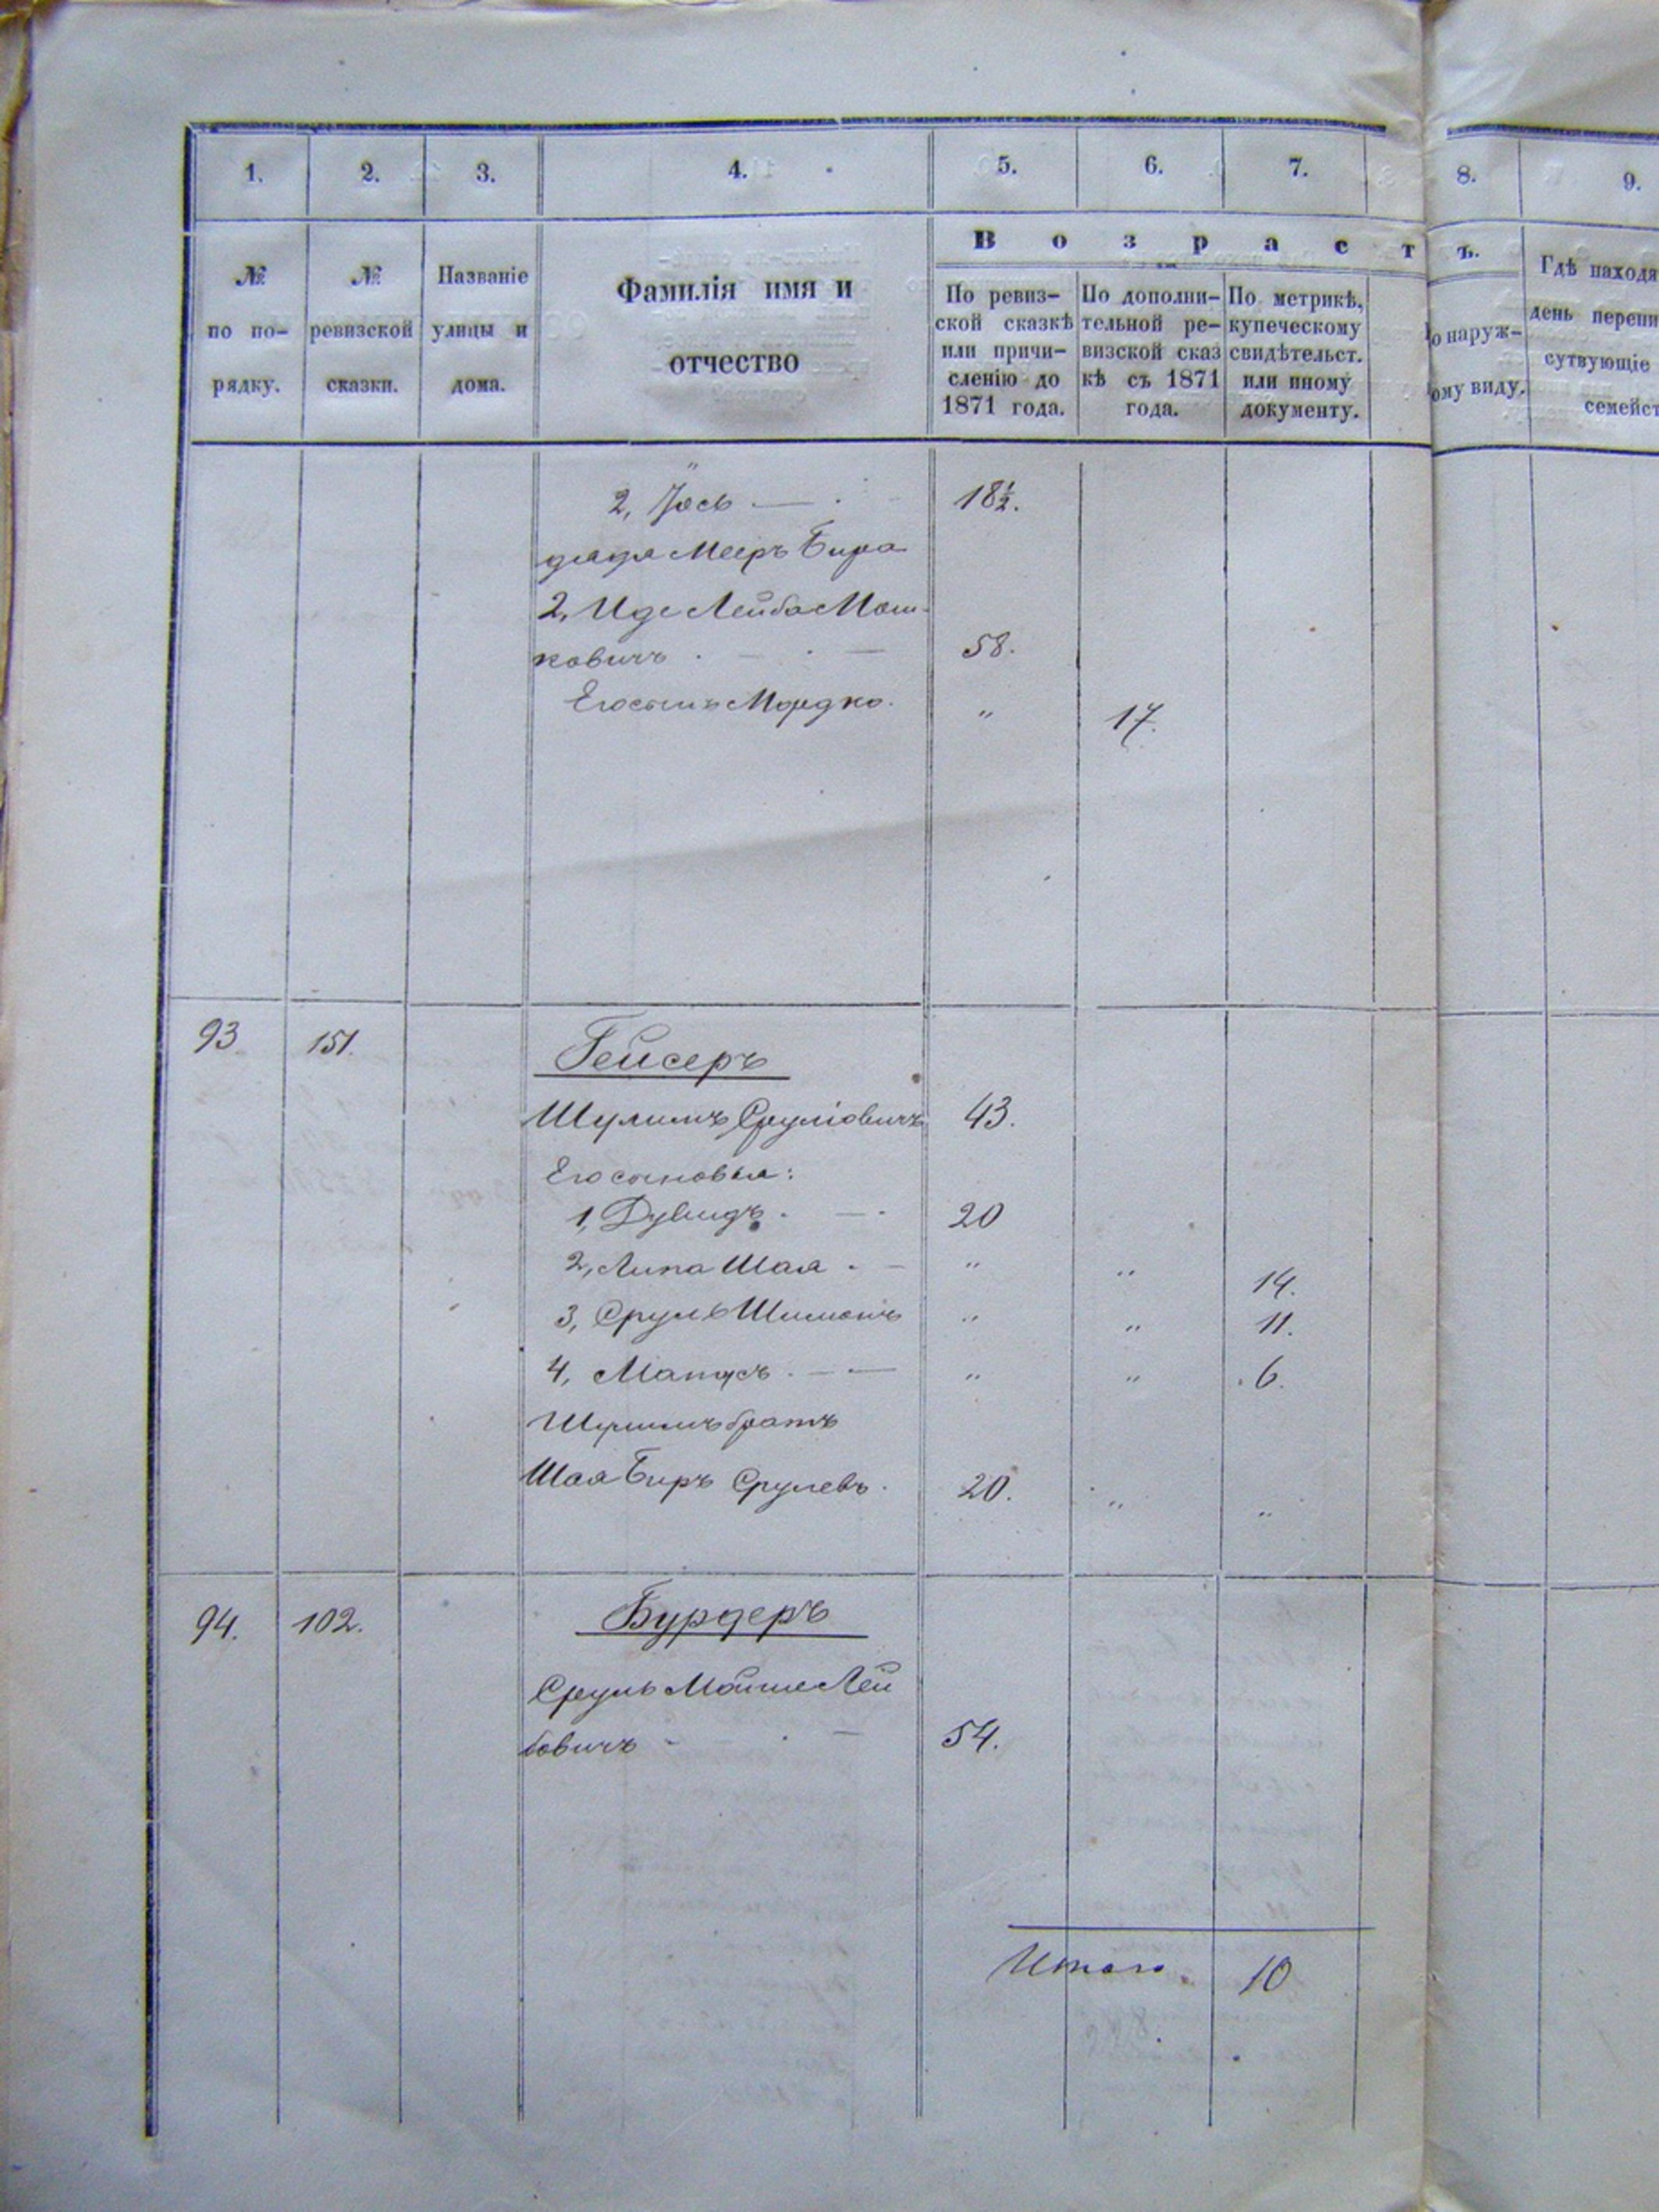 1. 2. 3. 4. 5. 6. 7. 8. 9.
В о з р а с т ъ.
№ по по-рядку.
№ ревизской сказки.
Названіе улицы и дома.
Фамилія имя и отчество
По ревиз-ской сказкѣ или причи-сленію до 1871 года.
По дополни-тельной ре-визской сказ кѣ съ 1871 года.
По метрикѣ, купеческому свидѣтельст. или иному документу.
о наруж-ому виду.
Гдѣ находя день перепи сутвующіе семейст
2, Іось — 18½.
дядя Мееръ Бера
2, Иде Лейба Мош-
ковичъ . — . — 58.
Его сынъ Мордко. " 17.
93 151. Гейсеръ
Шулимъ Сруліовичъ 43.
Его сыновья:
1, Дувидъ . — . 20
2, Липа Шая . — " " 14.
3, Сруль Шимонъ " " 11.
4, Манусъ . — — " " 6.
Шулимъ братъ
Шая Беръ Срулевъ . 20. " "
94. 102. Бурдеръ
Сруль Мойше Лей
бовичъ - . — 54.
Итого 10